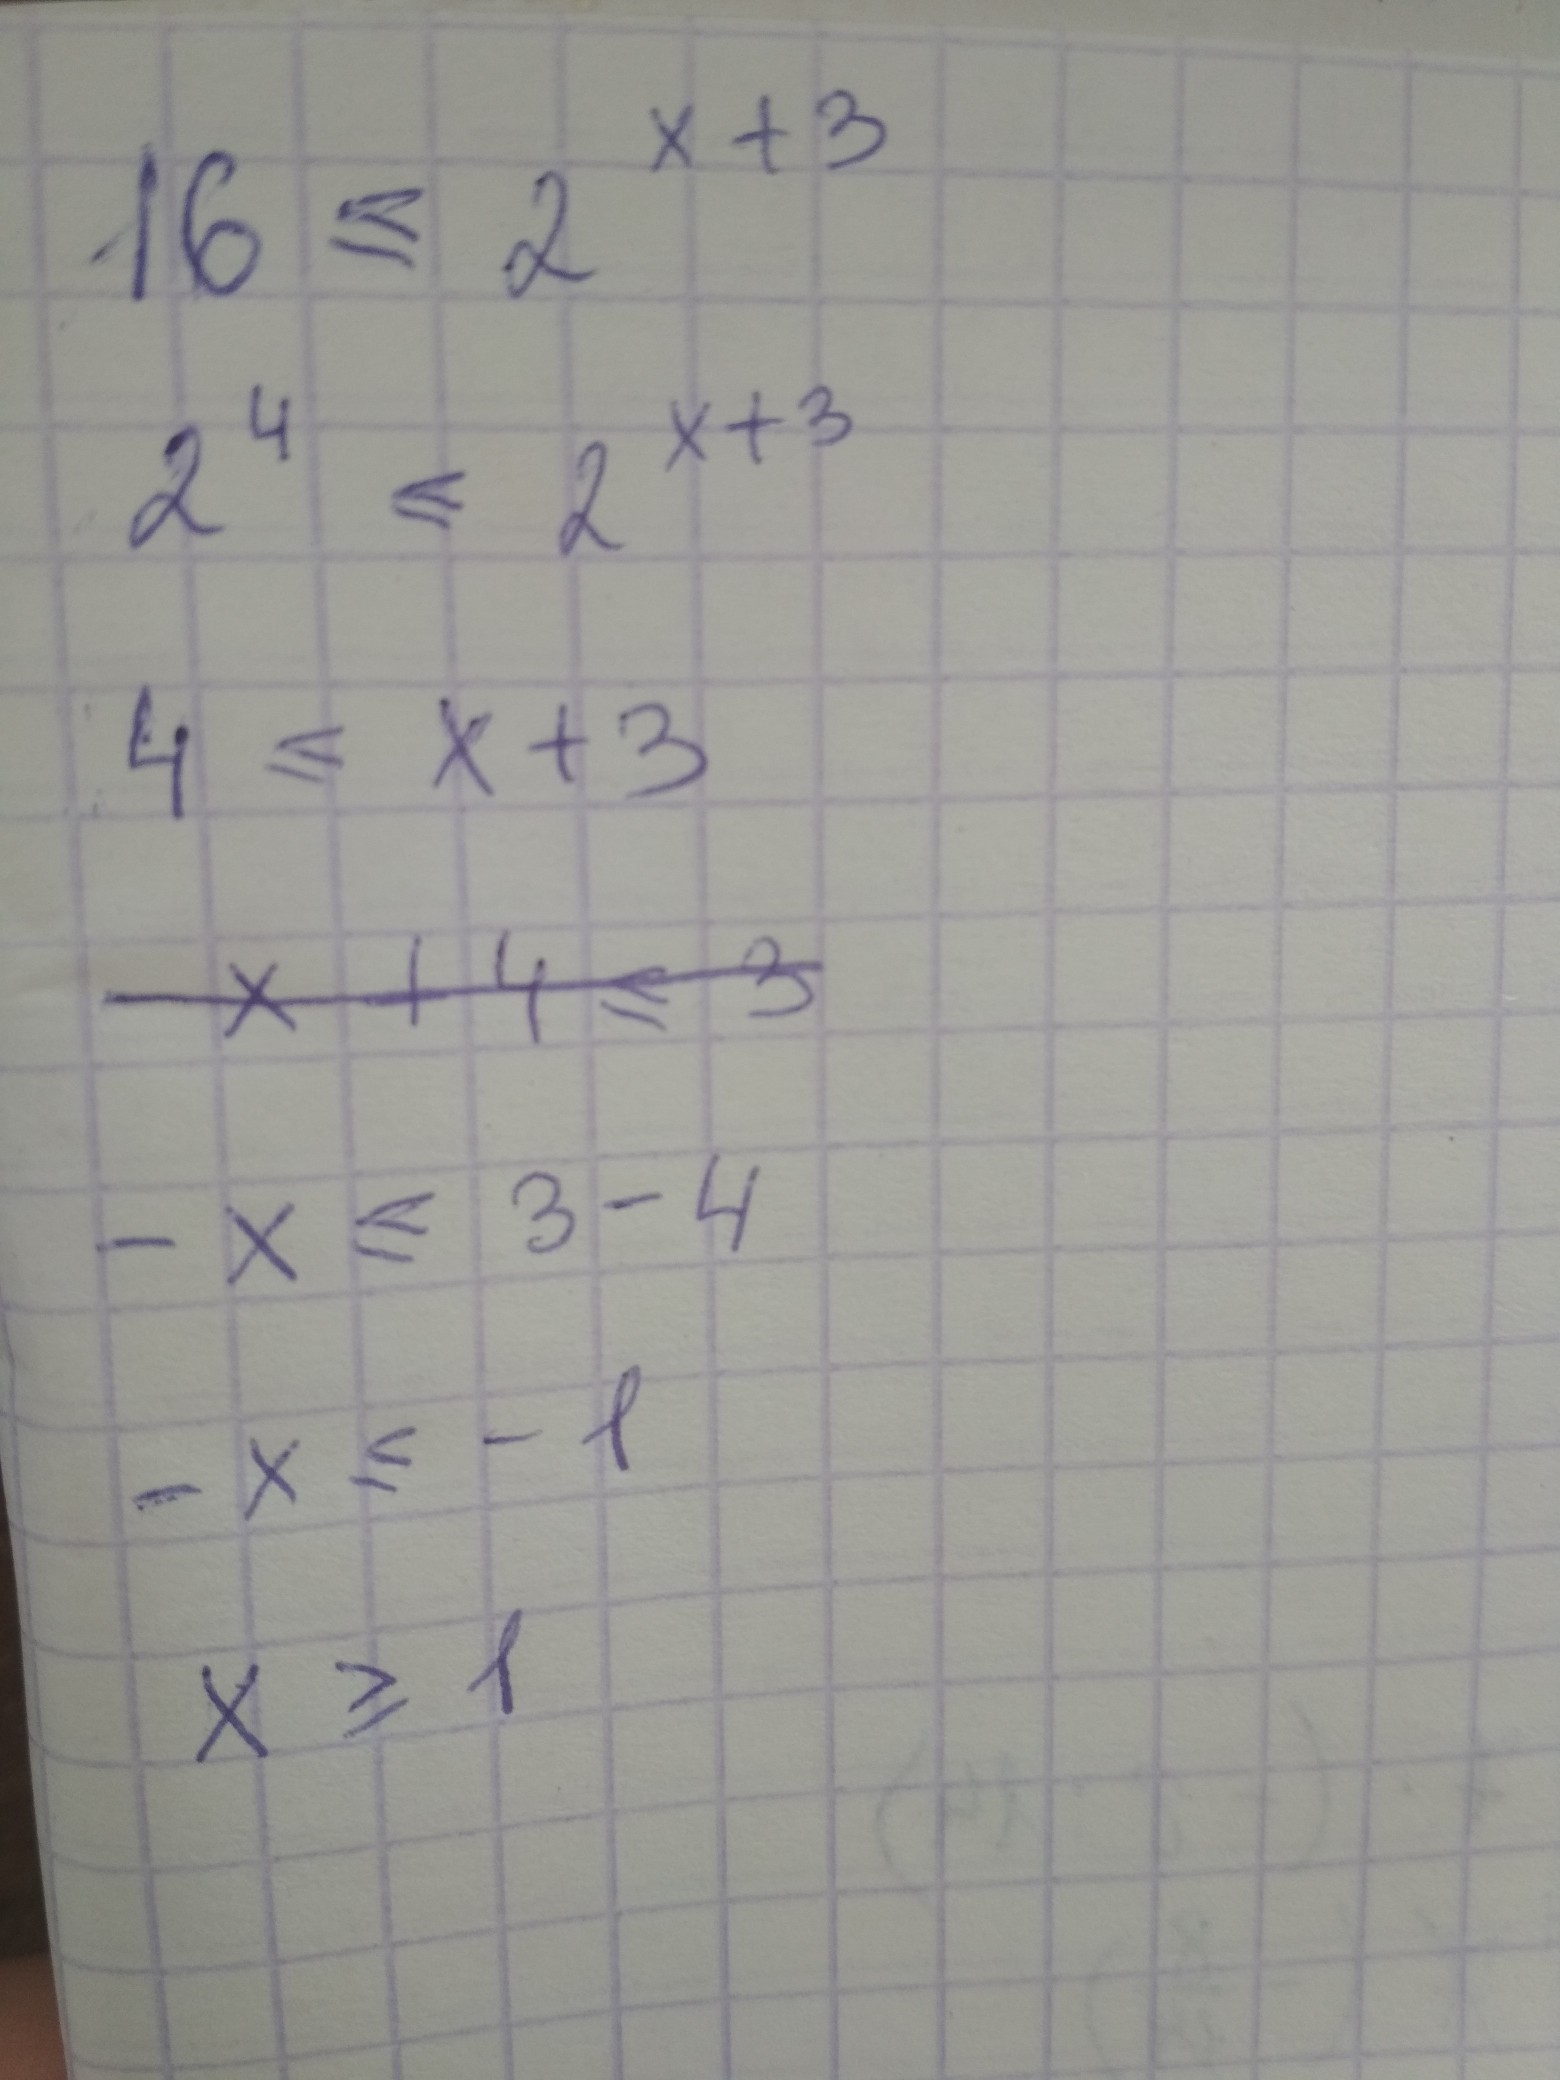 16 ≤ 2^{x+3}
2^4 ≤ 2^{x+3}
4 ≤ x+3
-x+4 ≤ 3
-x ≤ 3-4
-x ≤ -1
x ≥ 1